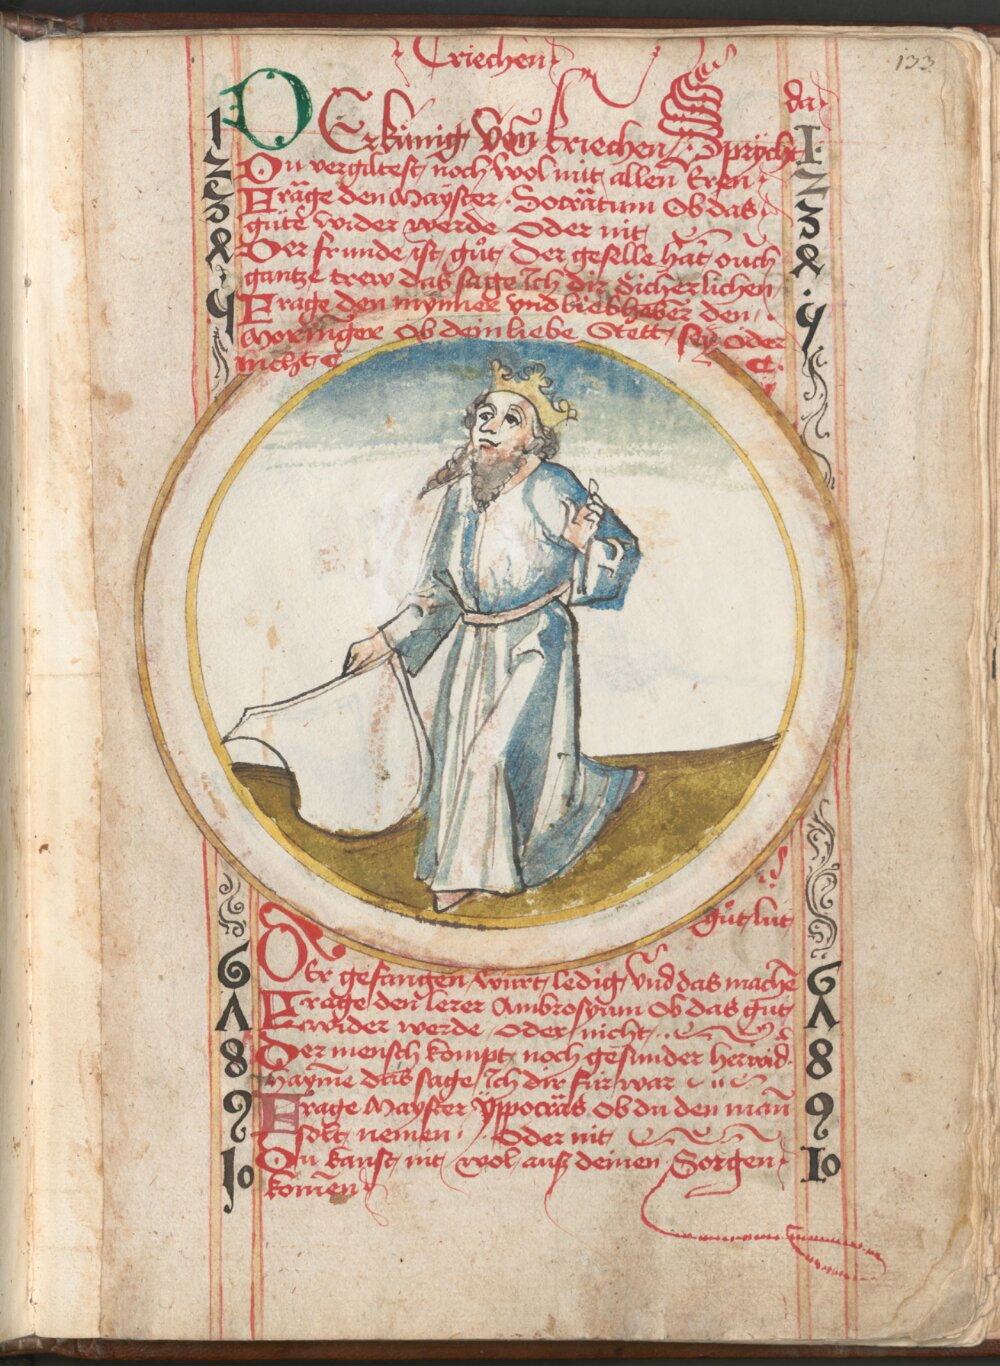 Kriechen
133
Der künig von kriechen Spricht
da
1 Du vergiltest noch wol mit allen Eren 1
2 Frage den Mayster Socratum Ob das 2
3 güte wider werde Oder nit 3
4 Der frunde ist gůt Der geselle hat ouch 4
gantze trew das sage Ich dir sicherlichen
5 Frage den mynner vnd liebhaber den 5
Moringer Ob dein liebe Stett sey oder
nicht
gůt lut
6 Der gefangen wurt ledig vnd das mache 6
7 Frage den lerer Ambrosyum Ob das gut 7
wider werde oder nicht
8 Der mensch kompt noch gesunder herwid 8
hayme das sage Ich dir fur war
9 Frage Mayster Yppocras ob du den man 9
solt nemen Oder nit
10 Du kanst nit wol auß deinen Sorgen 10
komen